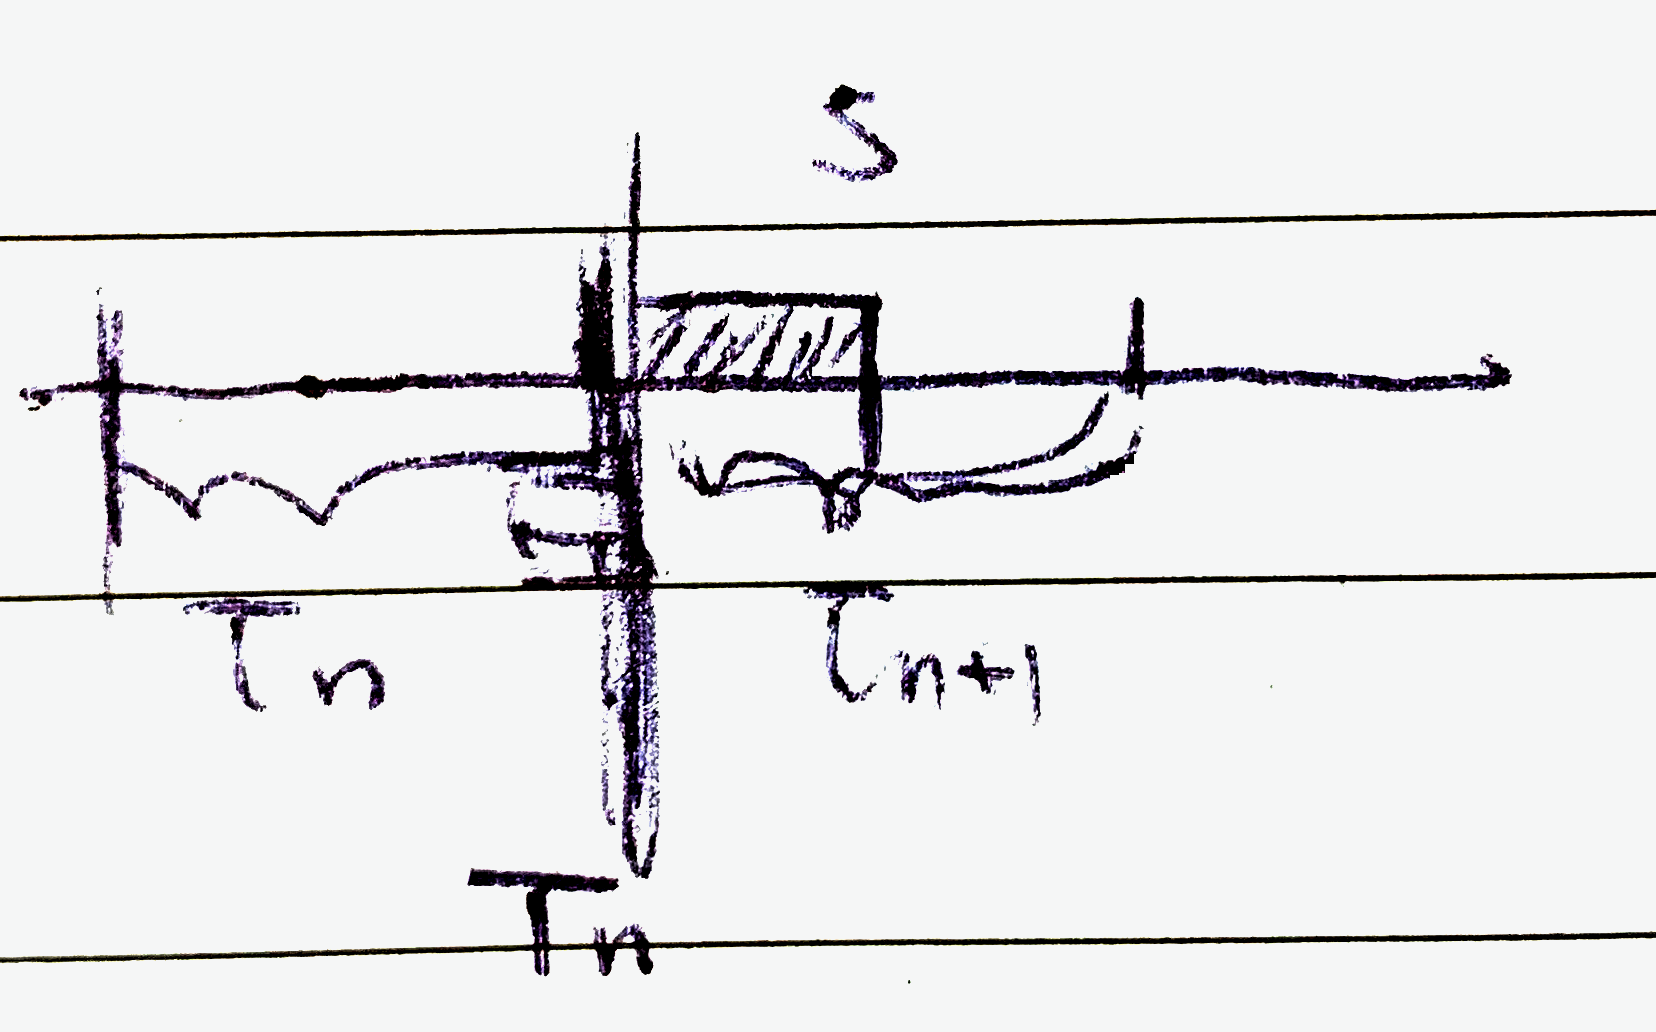 S
τn τn+1
Tn